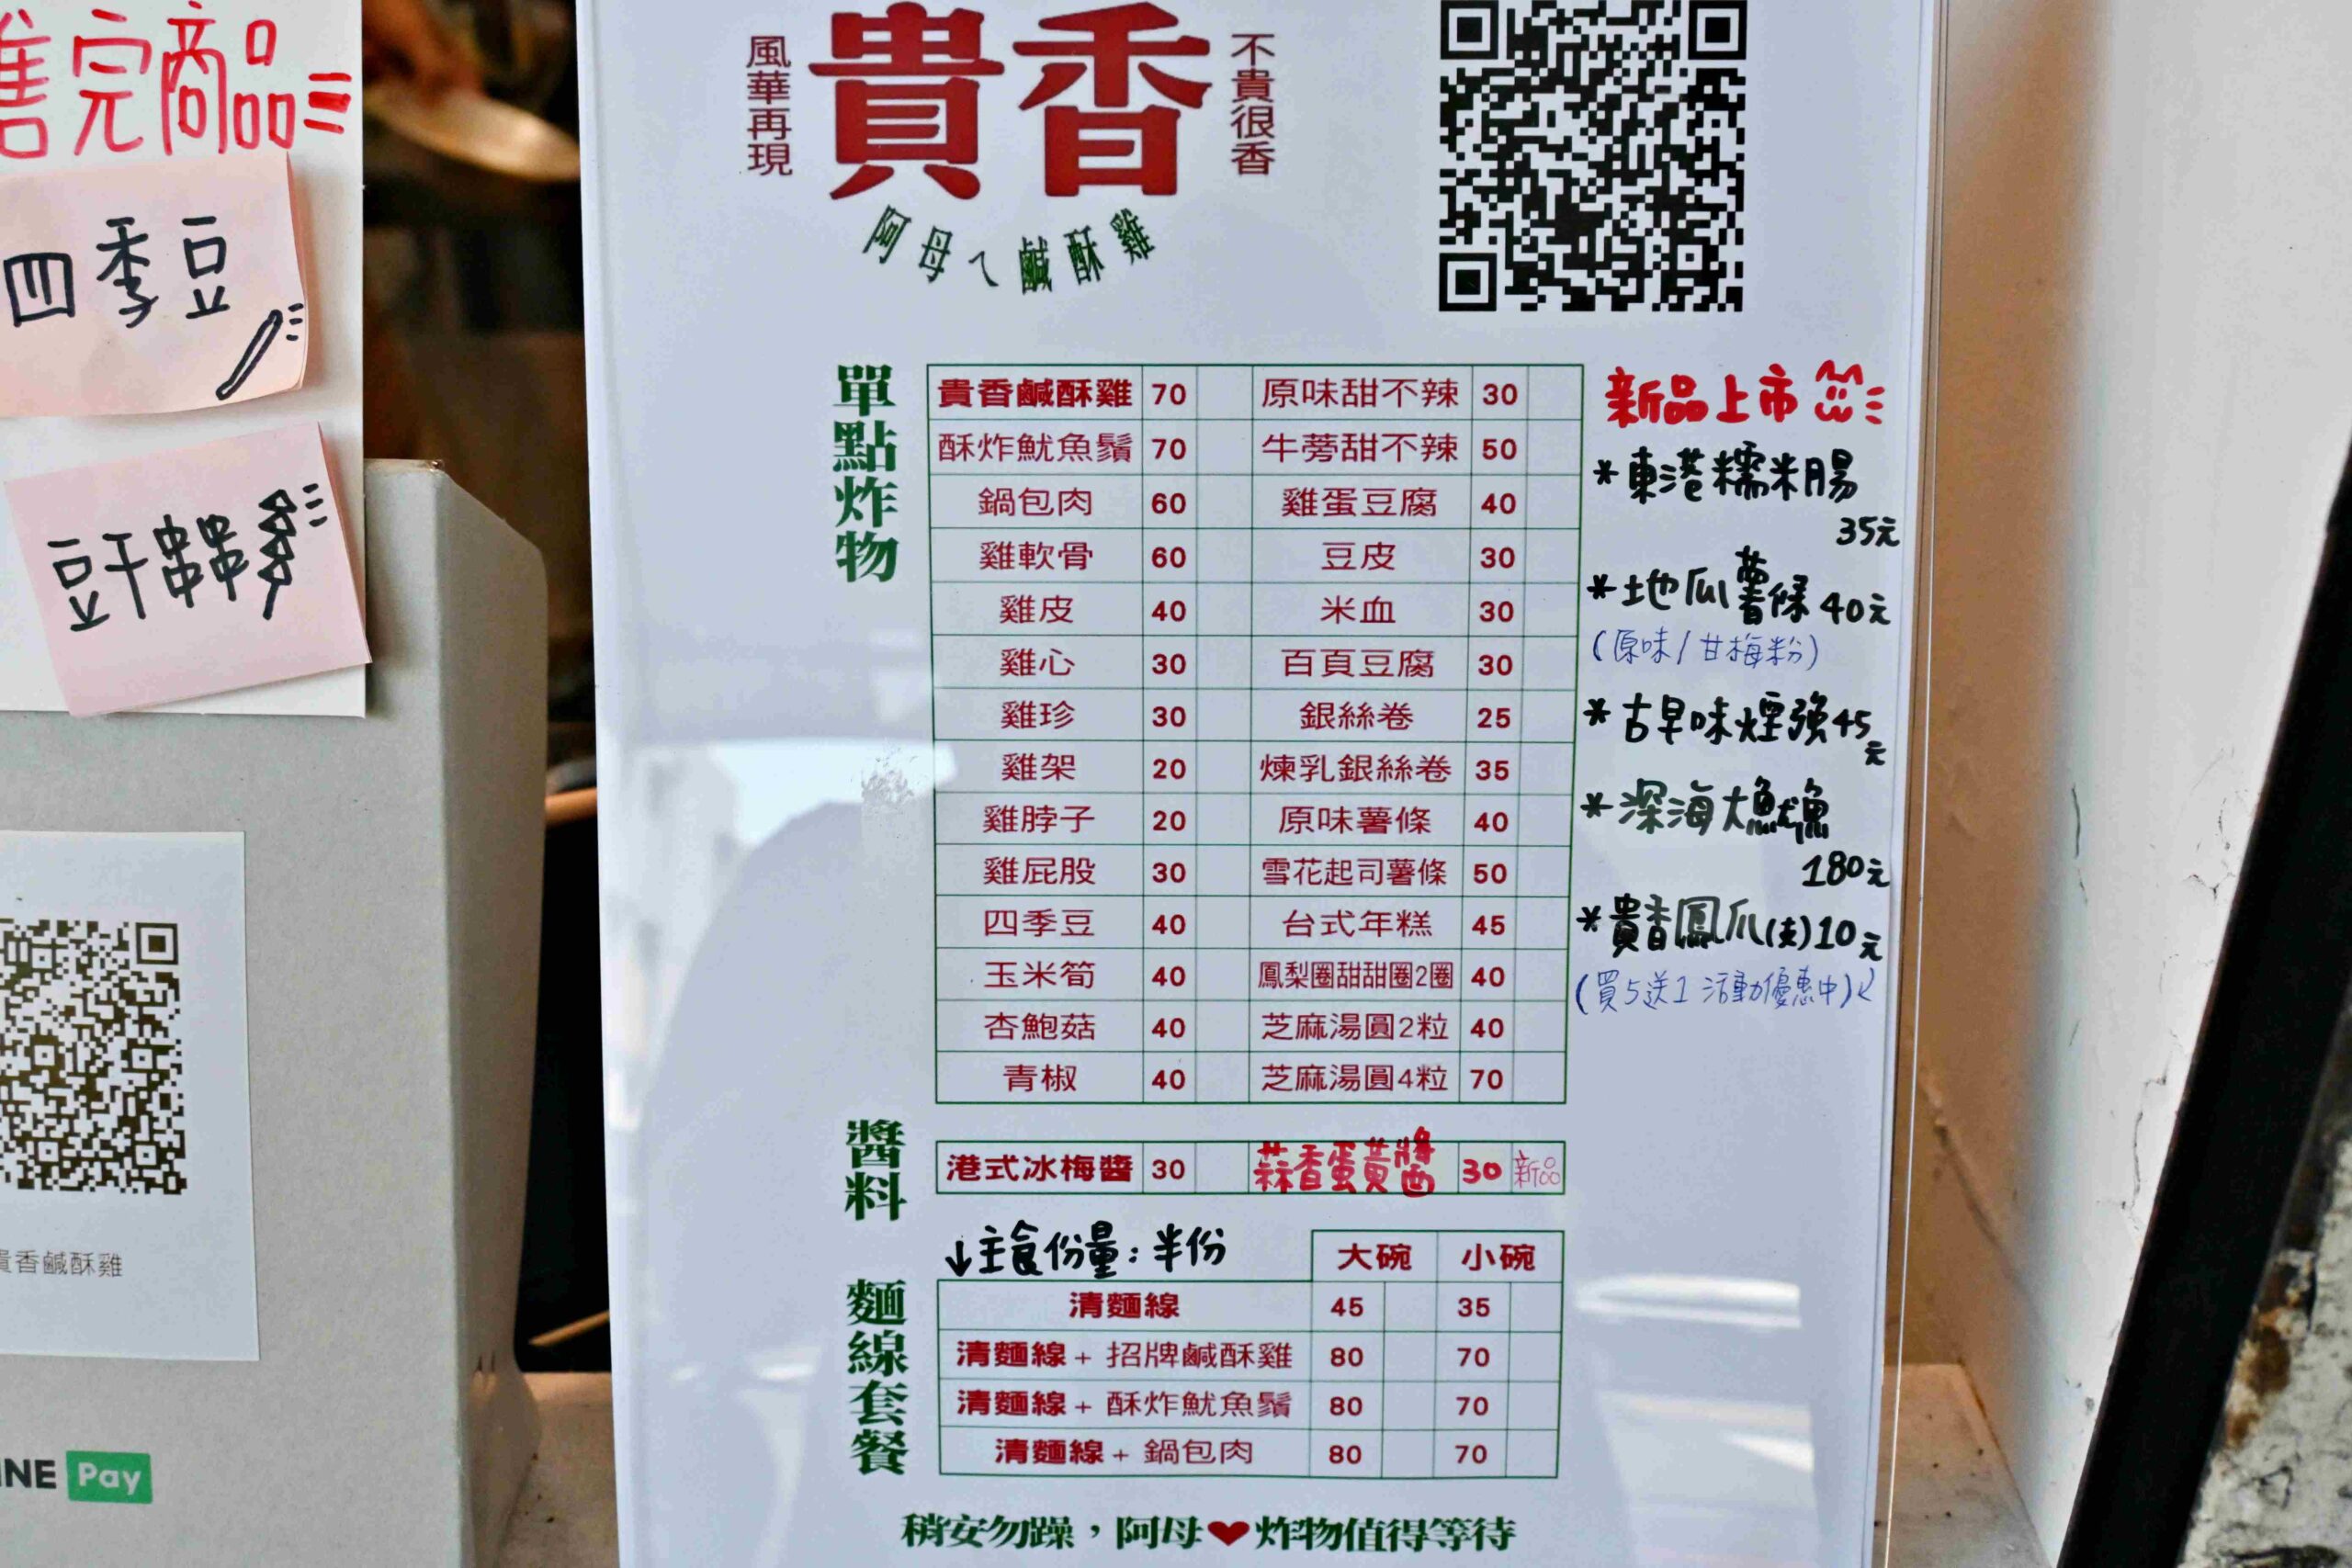 售完商品
四季豆
豆干串串
貴香鹹酥雞
Pay
風華再現
貴香
不貴很香
阿母ㄟ鹹酥雞
單點炸物
貴香鹹酥雞 70 原味甜不辣 30
酥炸魷魚鬚 70 牛蒡甜不辣 50
鍋包肉 60 雞蛋豆腐 40
雞軟骨 60 豆皮 30
雞皮 40 米血 30
雞心 30 百頁豆腐 30
雞珍 30 銀絲卷 25
雞架 20 煉乳銀絲卷 35
雞脖子 20 原味薯條 40
雞屁股 30 雪花起司薯條 50
四季豆 40 台式年糕 45
玉米筍 40 鳳梨圈甜甜圈2圈 40
杏鮑菇 40 芝麻湯圓2粒 40
青椒 40 芝麻湯圓4粒 70
新品上市
*東港糯米腸
35元
*地瓜薯條40元
(原味/甘梅粉)
*古早味煙強45元
*深海大魷魚
180元
*貴香鳳爪(支)10元
(買5送1活動優惠中)
醬料
港式冰梅醬 30 蒜香蛋黃醬 30 新品
↓主食份量:半份
大碗 小碗
麵線套餐
清麵線 45 35
清麵線 + 招牌鹹酥雞 80 70
清麵線 + 酥炸魷魚鬚 80 70
清麵線 + 鍋包肉 80 70
稍安勿躁,阿母❤炸物值得等待